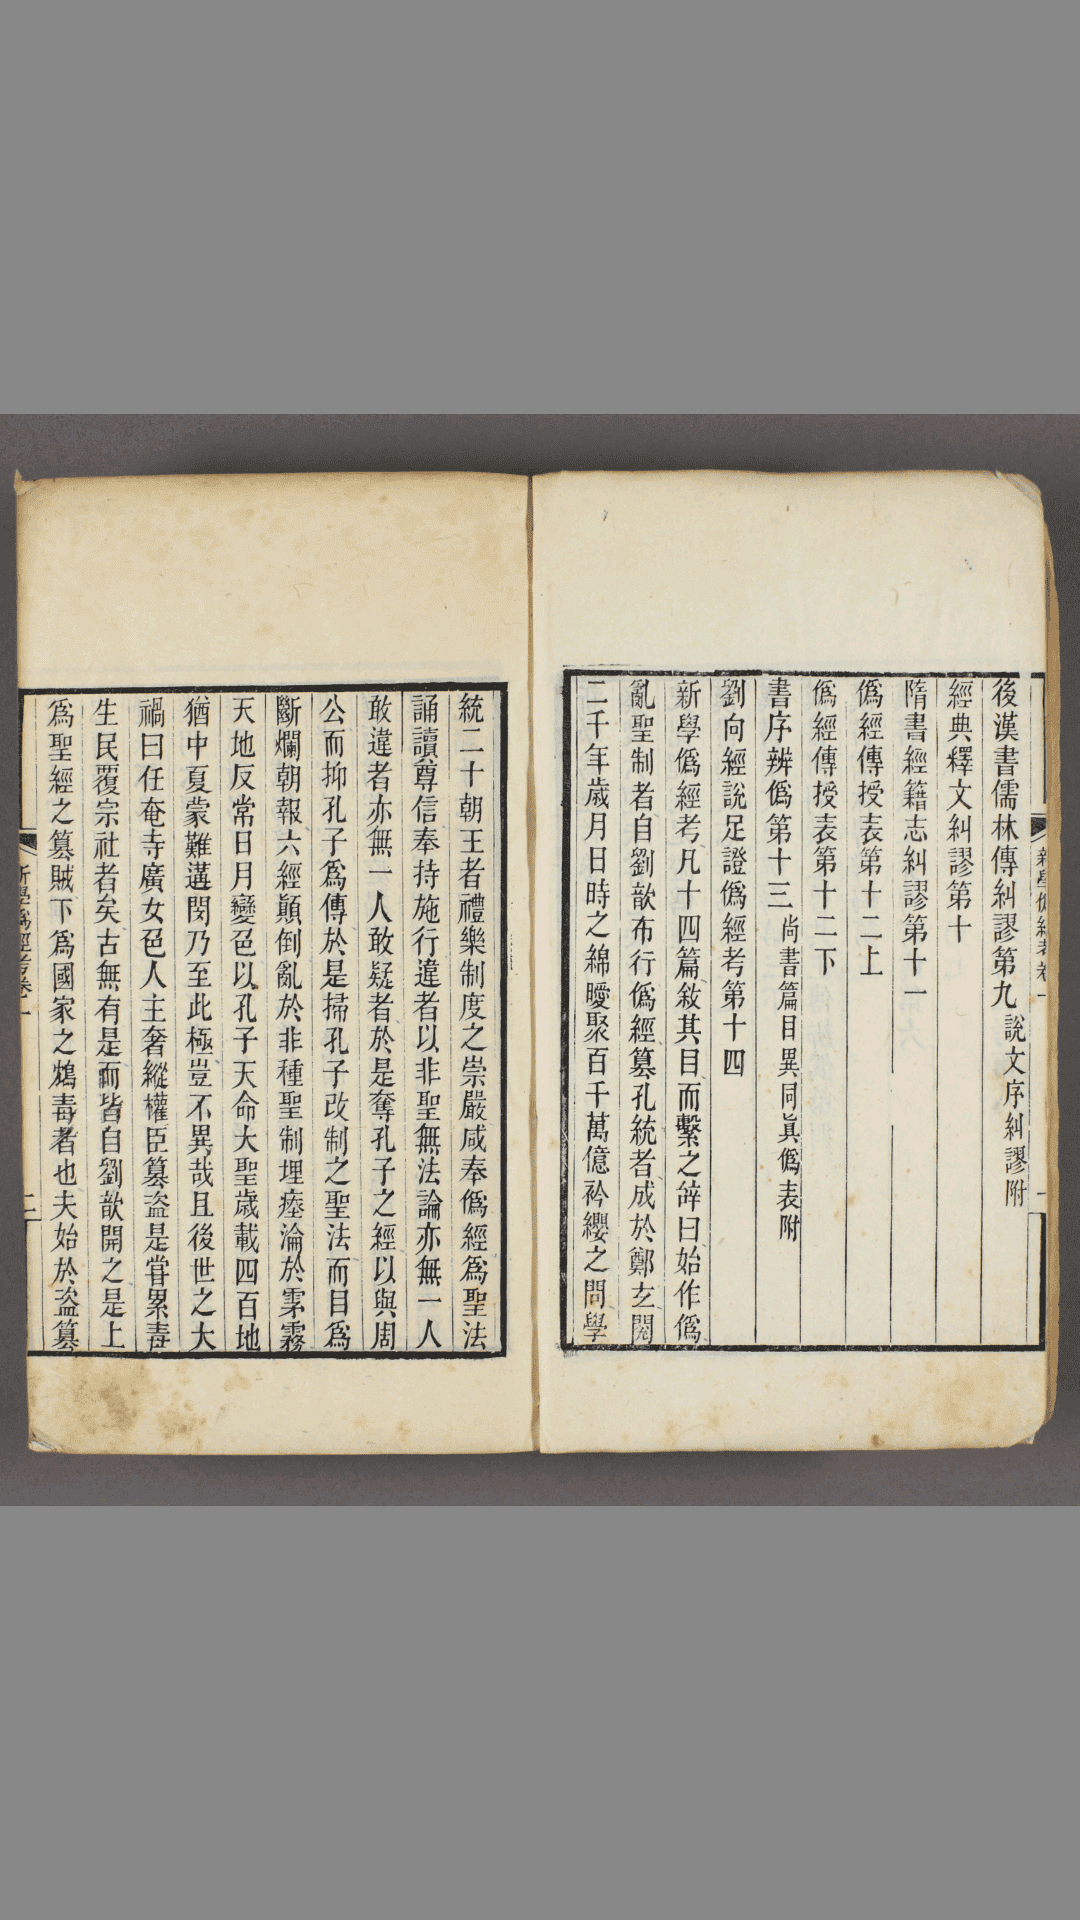 新學僞經考卷一
後漢書儒林傳糾謬第九 說文序糾謬附
經典釋文糾謬第十
隋書經籍志糾謬第十一
僞經傳授表第十二上
僞經傳授表第十二下
書序辨僞第十三 尚書篇目異同眞僞表附
劉向經說足證僞經考第十四
新學僞經考凡十四篇敘其目而繫之辭曰始作僞
亂聖制者自劉歆布行僞經篡孔統者成於鄭玄閱
二千年歲月日時之綿曖聚百千萬億衿纓之問學
統二十朝王者禮樂制度之崇嚴咸奉僞經爲聖法
誦讀尊信奉持施行違者以非聖無法論亦無一人
敢違者亦無一人敢疑者於是奪孔子之經以與周
公而抑孔子爲傳於是掃孔子改制之聖法而目爲
斷爛朝報六經顚倒亂於非種聖制埋瘞淪於雺霧
天地反常日月變色以孔子天命大聖歲載四百地
猶中夏蒙難遘閔乃至此極豈不異哉且後世之大
禍曰任奄寺廣女色人主奢縱權臣篡盜是嘗累毒
生民覆宗社者矣古無有是而皆自劉歆開之是上
爲聖經之篡賊下爲國家之鴆毒者也夫始於盜篡
新學僞經考卷一
二